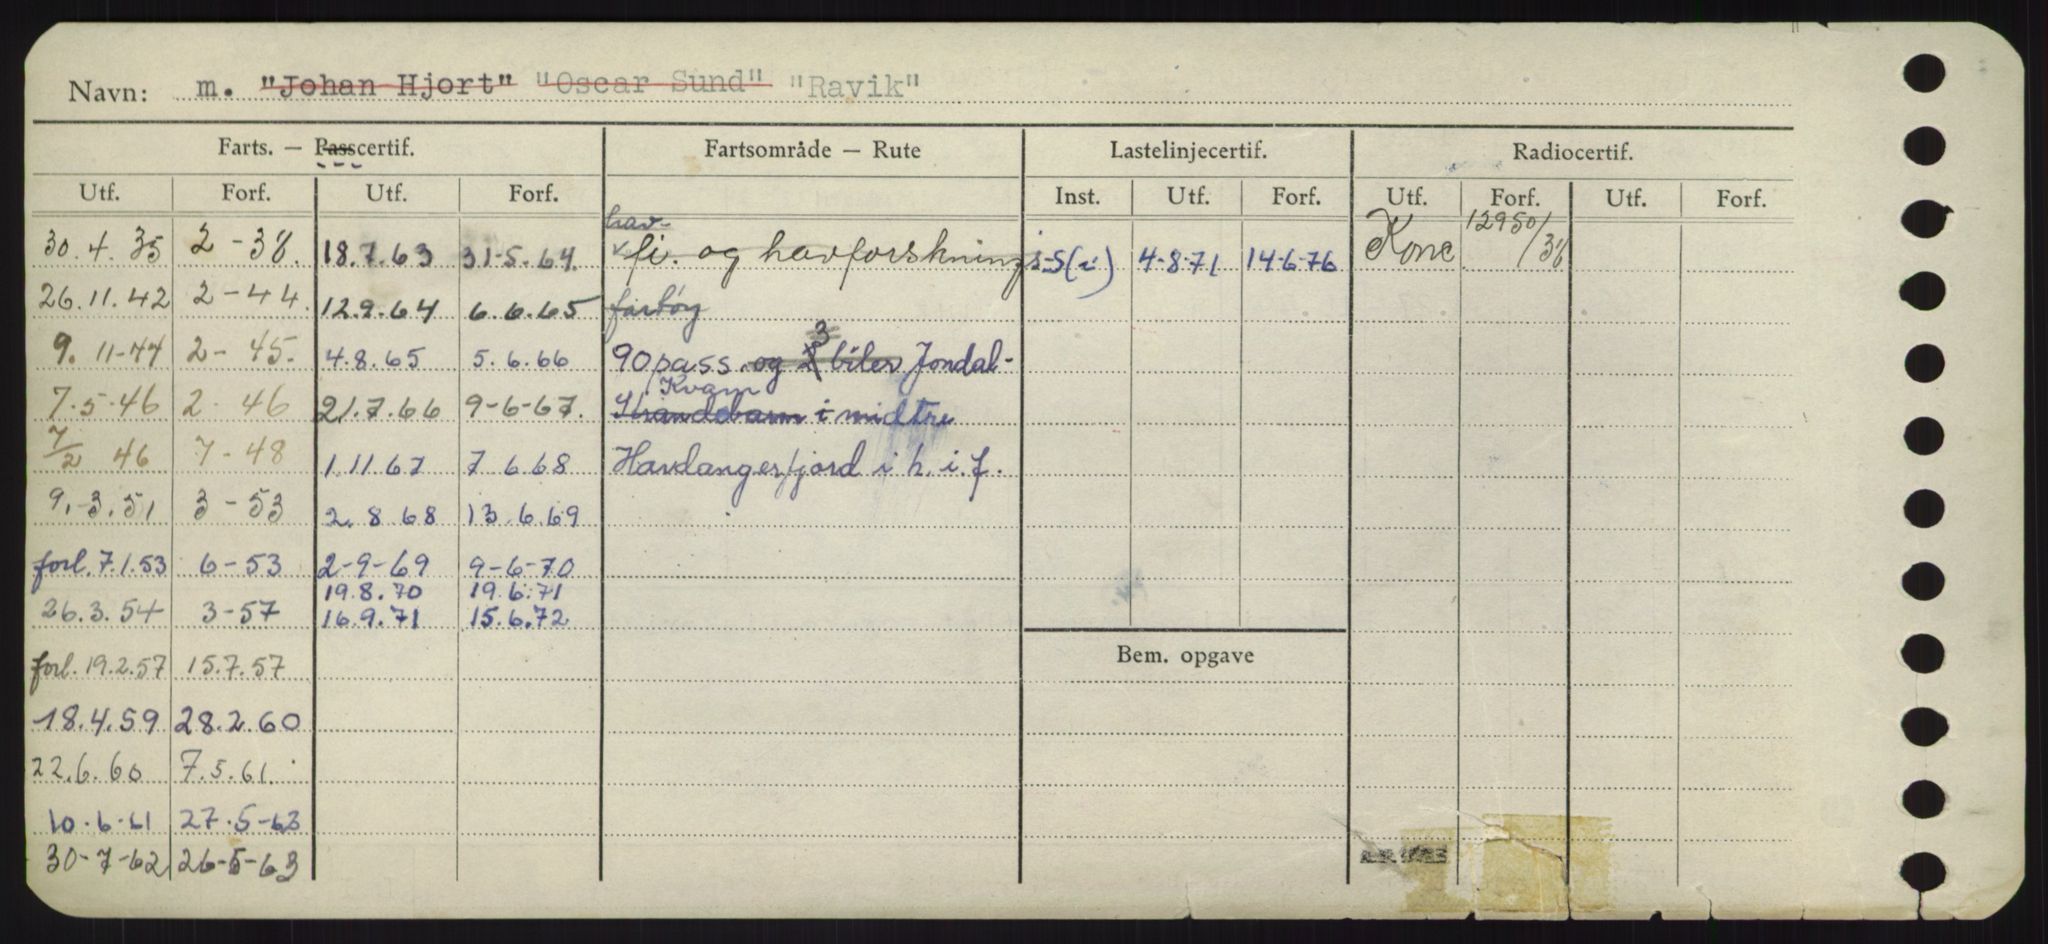 Navn: m. "Johan Hjort" "Oscar Sund" "Ravik"
Farts. — Passcertif. Fartsområde — Rute Lastelinjecertif. Radiocertif.
Utf. Forf. Utf. Forf. Inst. Utf. Forf. Utf. Forf. Utf. Forf.
hav- 12950/38
30.4.35 2-38. 18.7.63 31-5.64. fi. og havforskning s-s(i) 4-8-71 14-6-76 Konc
26.11.42 2-44. 12.9.64 6.6.65 fartøy
3
9. 11-44 2-45. 4.8.65 5.6.66 90 pass. og 2 biler Jondal-
Kvam
7.5.46 2-46 21.7.66 9-6-67. Strandebarm i midtre
7/2 46 7-48 1.11.67 7 6.68 Hardangerfjord i h.i.f.
9.-3.51 3-53 2.8.68 13.6.69
forl. 7.1.53 6-53 2-9-69 9-6-70
19.8.70 19.6.71
26.3.54 3-57 16.9.71 15.6.72
Bem. opgave
forl. 19.2.57 15.7.57
18.4.59 28.2.60
22.6.60 7.5.61.
10.6.61 27.5-63
30-7-62 26-5-63